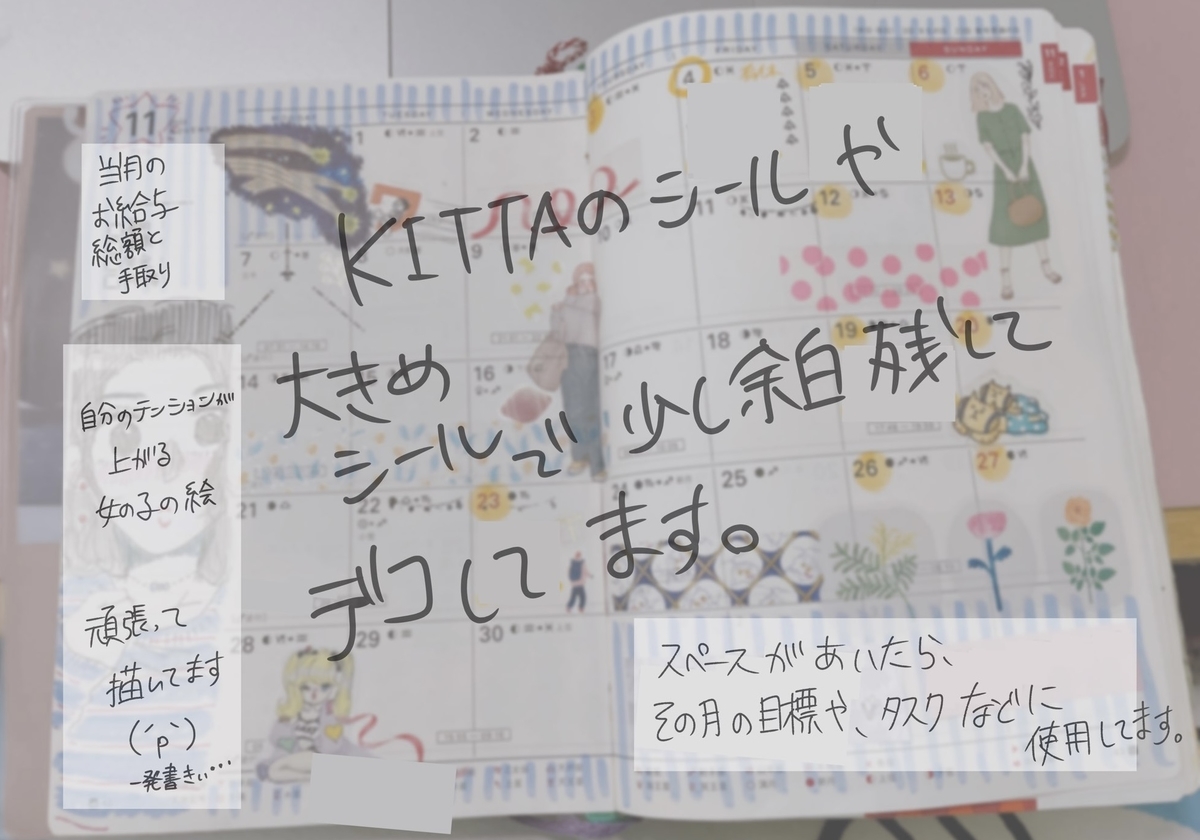 11
当月の
お給与
総額と
手取り
自分のテンションが
上がる
女の子の絵
頑張って
描いてます
(´p`)
一発書きぃ…
KITTAのシールや
大きめ
シールで少し余白残して
デコしてます。
スペースがあいたら、
その月の目標や、タスクなどに
使用してます。
FRIDAY
SATURDAY
SUNDAY
1
2
4
5
6
7
9
11
12
13
14
16
17
18
19
21
22
23
25
26
27
28
29
30